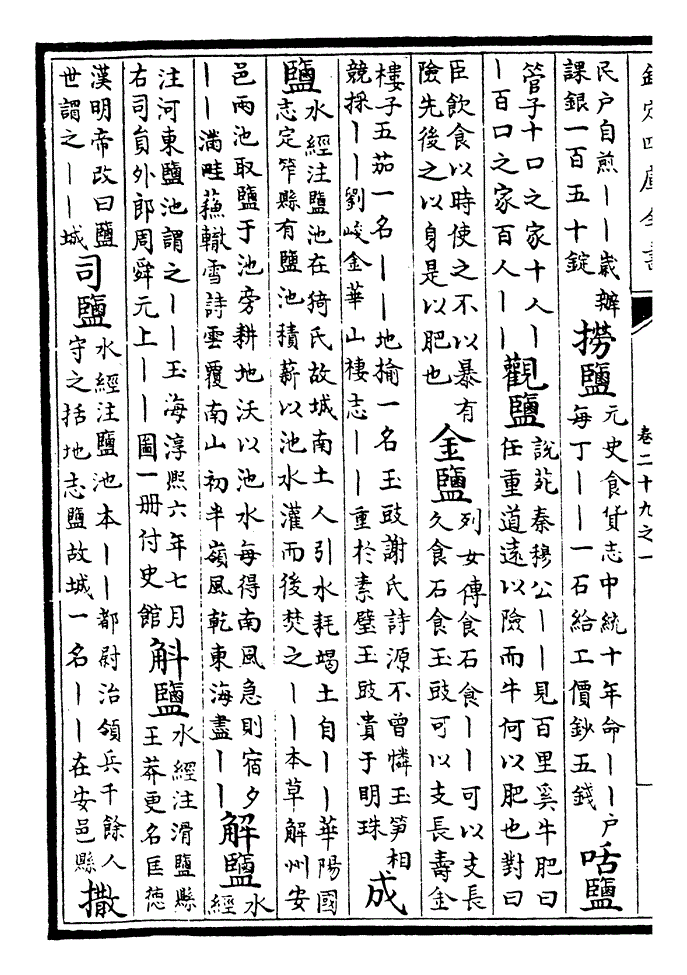 欽定四庫全書
卷二十九之一
民户自煎——歲辦
課銀一百五十錠
撈鹽
元史食貨志中統十年命——户
每丁——一石給工價鈔五錢
咶鹽
管子十口之家十人—
—百口之家百人——
觀鹽
說苑秦穆公——見百里奚牛肥曰
任重道遠以險而牛何以肥也對曰
臣飲食以時使之不以暴有
險先後之以身是以肥也
金鹽
列女傳食石食——可以支長
久食石食玉豉可以支長壽金
樓子五茄一名——地揄一名玉豉謝氏詩源不曾憐玉笋相
競採——劉峻金華山棲志——重於素璧玉豉貴于明珠
成
鹽
水經注鹽池在猗氏故城南土人引水耗竭土自——華陽國
志定笮縣有鹽池積薪以池水灌而後焚之——本草解州安
邑兩池取鹽于池旁耕地沃以池水每得南風急則宿夕
——滿畦蘓轍雪詩雲覆南山初半嶺風乾東海盡——
解鹽
水
經
注河東鹽池謂之——玉海淳熙六年七月
右司員外郎周舜元上——圖一冊付史館
斛鹽
水經注滑鹽縣
王莽更名匡德
漢明帝改曰鹽
世謂之——城
司鹽
水經注鹽池本——都尉治領兵千餘人
守之括地志鹽故城一名——在安邑縣
撒